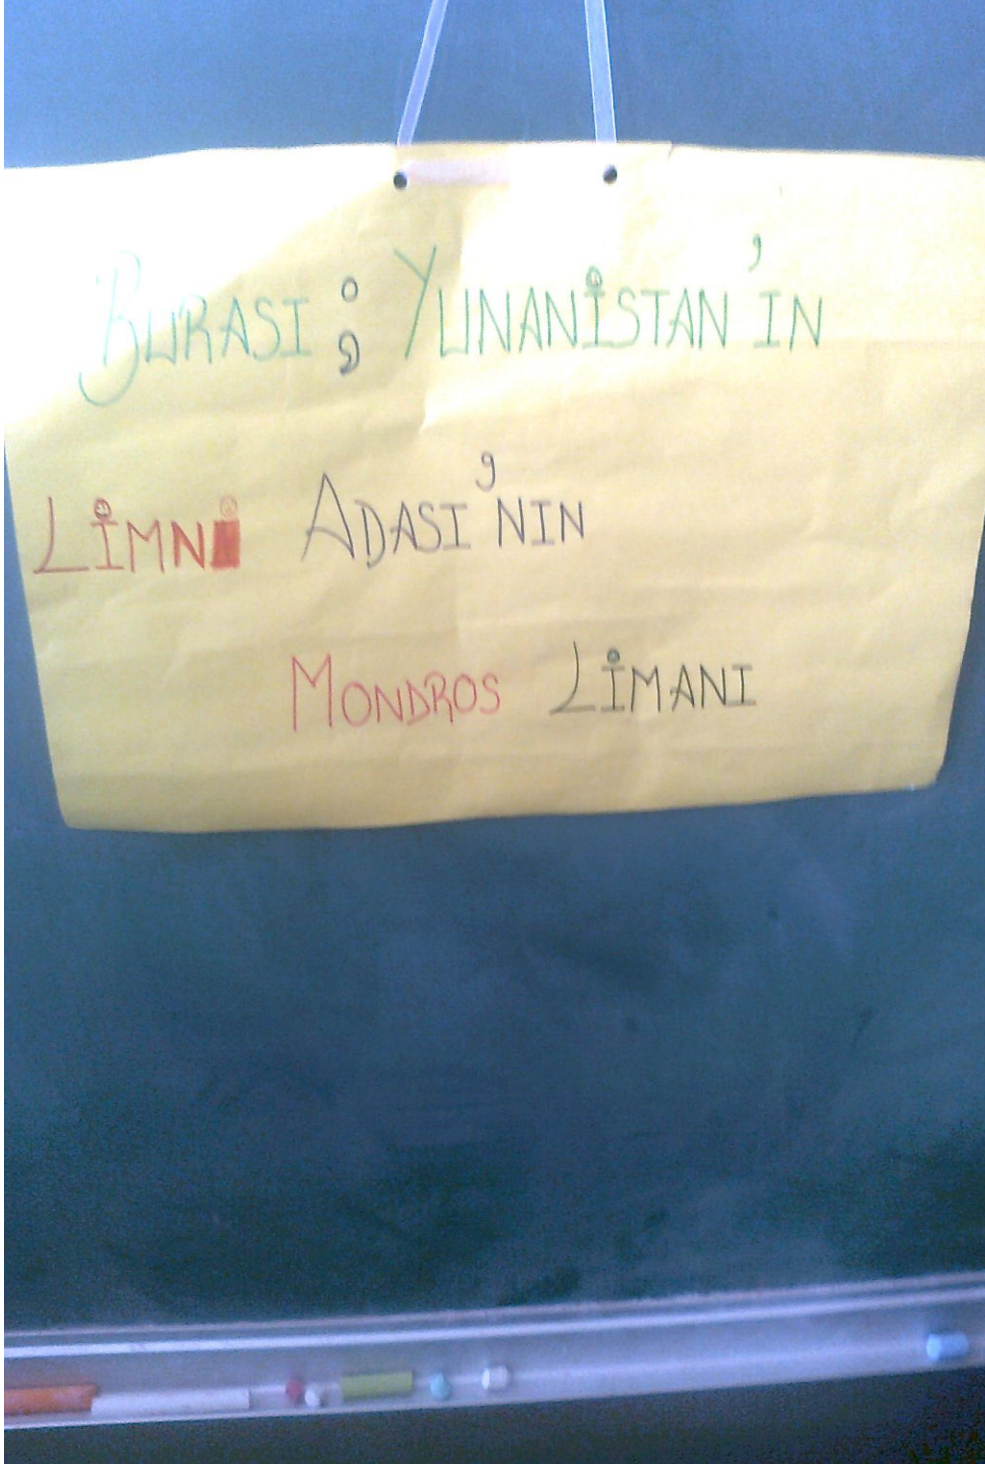 BURASI ; YUNANİSTAN'IN
LİMNİ ADASI'NIN
MONDROS LİMANI